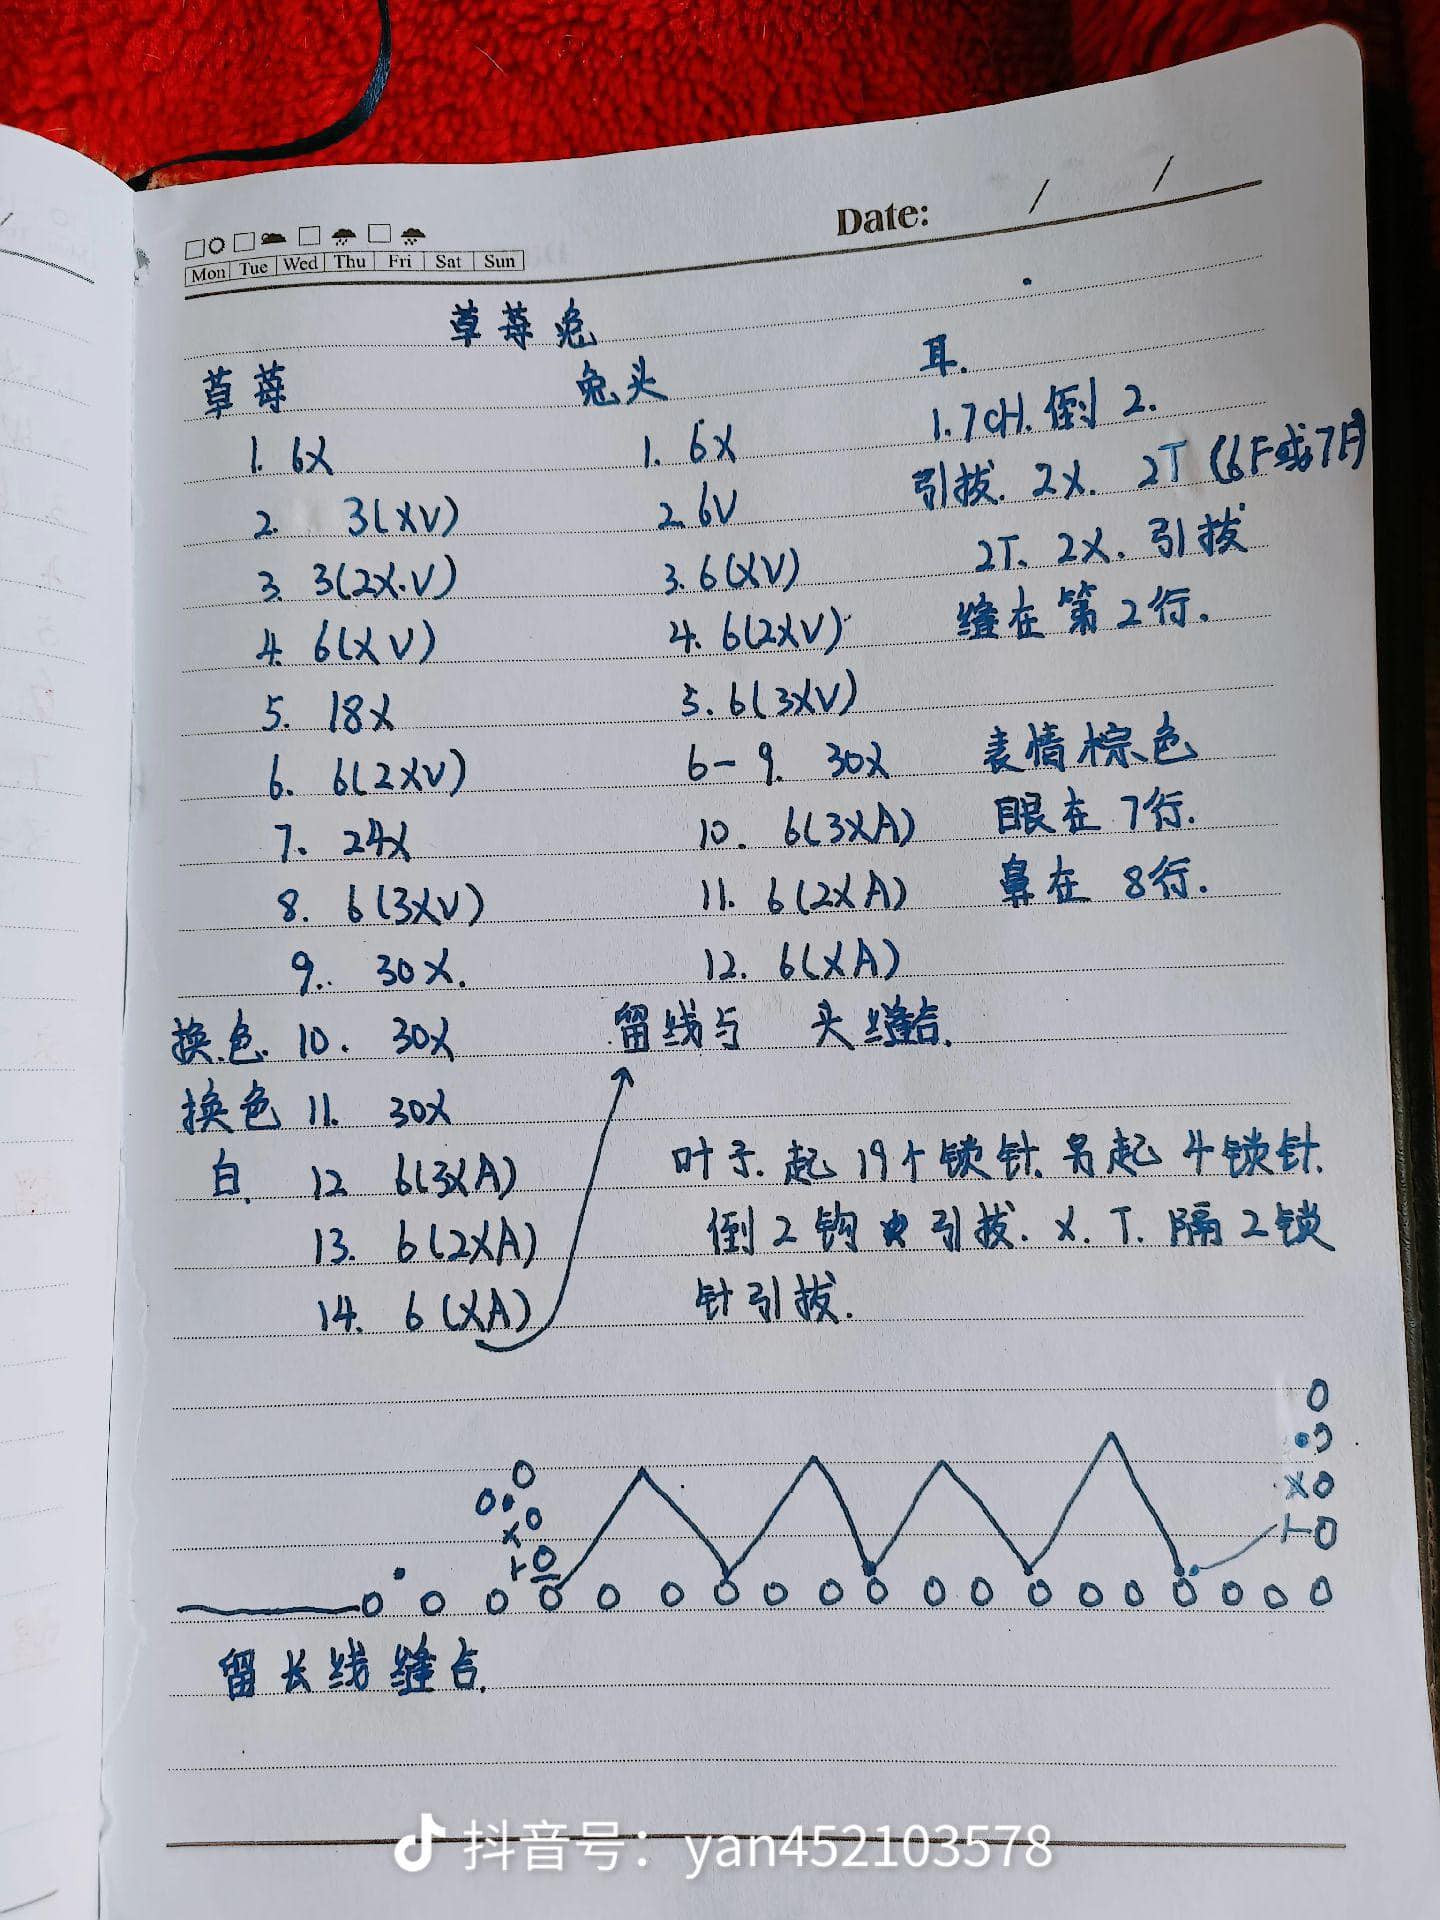 Date: / /
Mon Tue Wed Thu Fri Sat Sun
草莓兔
草莓
1. 6X
2. 3(XV)
3. 3(2X.V)
4. 6(XV)
5. 18X
6. 6(2XV)
7. 24X
8. 6(3XV)
9. 30X.
换色. 10. 30X
换色 11. 30X
白. 12 6(3XA)
13. 6(2XA)
14. 6(XA)
兔头
1. 6X
2. 6V
3. 6(XV)
4. 6(2XV)
5. 6(3XV)
6-9. 30X
10. 6(3XA)
11. 6(2XA)
12. 6(XA)
留线与 头缝合.
耳.
1.7CH.倒2.
引拔. 2X. 2T (6F或7F)
2T. 2X. 引拔
缝在第2行.
表情棕色
眼在7行.
鼻在 8行.
叶子.起19个锁针.另起4锁针.
倒2钩 引拔. X. T. 隔2锁
针引拔.
O
O
X O
T O
O
O
X O
T O
O O O O O O O O O O O O O O O O O O O
留长线缝合.
抖音号：yan452103578